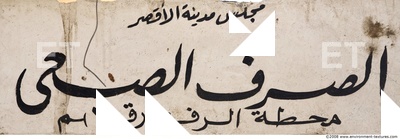 مجلس مدينة الأقصر
الصرف الصحى
محطة الرفع رقم
©2006 www.environment-textures.com